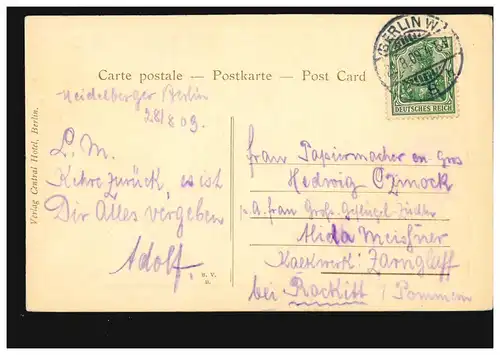 BERLIN W
Carte postale — Postkarte — Post Card
DEUTSCHES REICH
Verlag Central Hotel, Berlin.
Heidelberger Berlin
28/8 09.
L. M.
Kehre zurück, es ist
Dir Alles vergeben
Adolf
Frau Papiermacher en gros
Hedwig Ozmock
p. A. Frau Groß-Geflügel-Züchter
Alida Meißner
Kalkwerk: Zarnglaff
bei Rackitt / Pommern